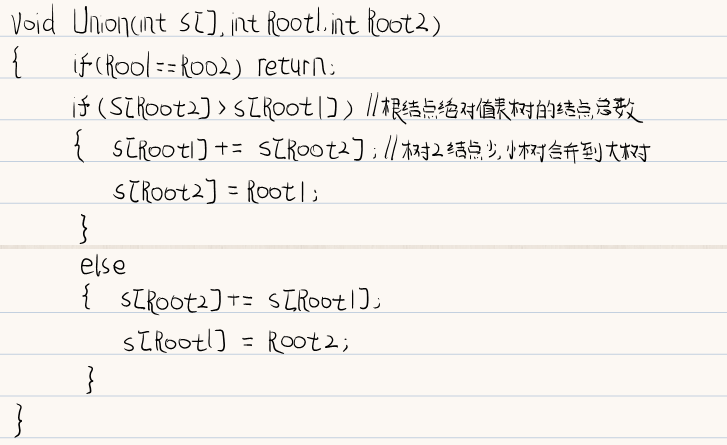 void Union(int S[], int Root1, int Root2)
{ if(Roo1==Roo2) return;
if(S[Root2]>S[Root1]) //根结点绝对值表树的结点总数
{ S[Root1] += S[Root2]; //树2结点少,小树合并到大树
S[Root2] = Root1;
}
else
{ S[Root2] += S[Root1];
S[Root1] = Root2;
}
}